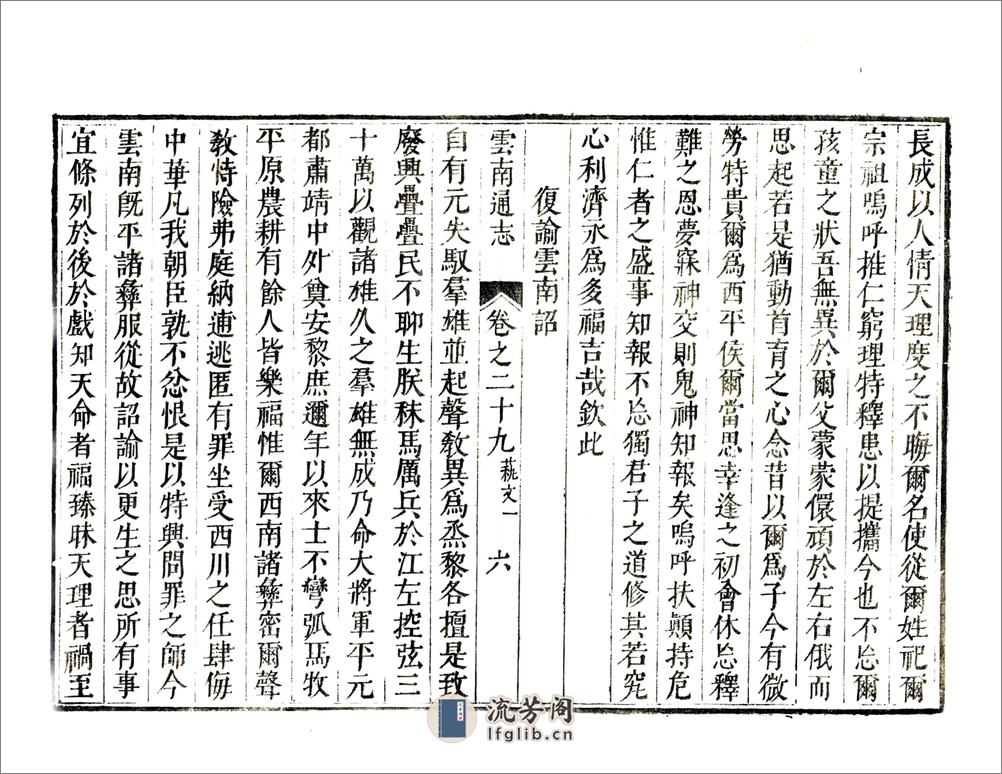 長成以人情天理度之不晦爾名使從爾姓祀爾
宗祖嗚呼推仁窮理特釋患以提攜今也不忘爾
孩童之狀吾無異於爾父蒙蒙儇頑於左右俄而
思起若是猶動首育之心念昔以爾爲子今有微
勞特貴爾爲西平侯爾當思幸逢之初會休忘釋
難之恩夢寐神交則鬼神知報矣嗚呼扶顚持危
惟仁者之盛事知報不忘獨君子之道修其若究
心利濟永爲多福吉哉欽此
復諭雲南詔
雲南通志
卷之二十九
藝文一
六
自有元失馭羣雄並起聲敎異爲烝黎各擅是致
廢興疊疊民不聊生朕秣馬厲兵於江左控弦三
十萬以觀諸雄久之羣雄無成乃命大將軍平元
都肅靖中外奠安黎庶邇年以來士不彎弧馬牧
平原農耕有餘人皆樂福惟爾西南諸彝密爾聲
敎恃險弗庭納逋逃匿有罪坐受西川之任肆侮
中華凡我朝臣孰不忿恨是以特興問罪之師今
雲南旣平諸彝服從故詔諭以更生之思所有事
宜條列於後於戲知天命者福臻昧天理者禍至
流芳阁
lfglib.cn